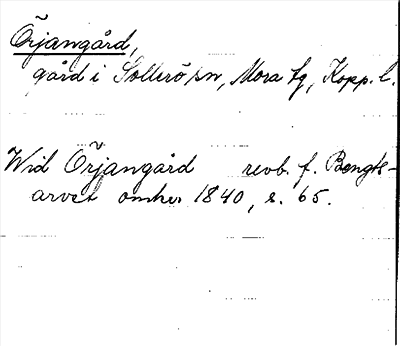 Örjangård,
gård i Sollerö sn, Mora tg, Kopp. l.
Wid Örjangård revb. f. Bengts-
arvet omkr. 1840, s. 65.